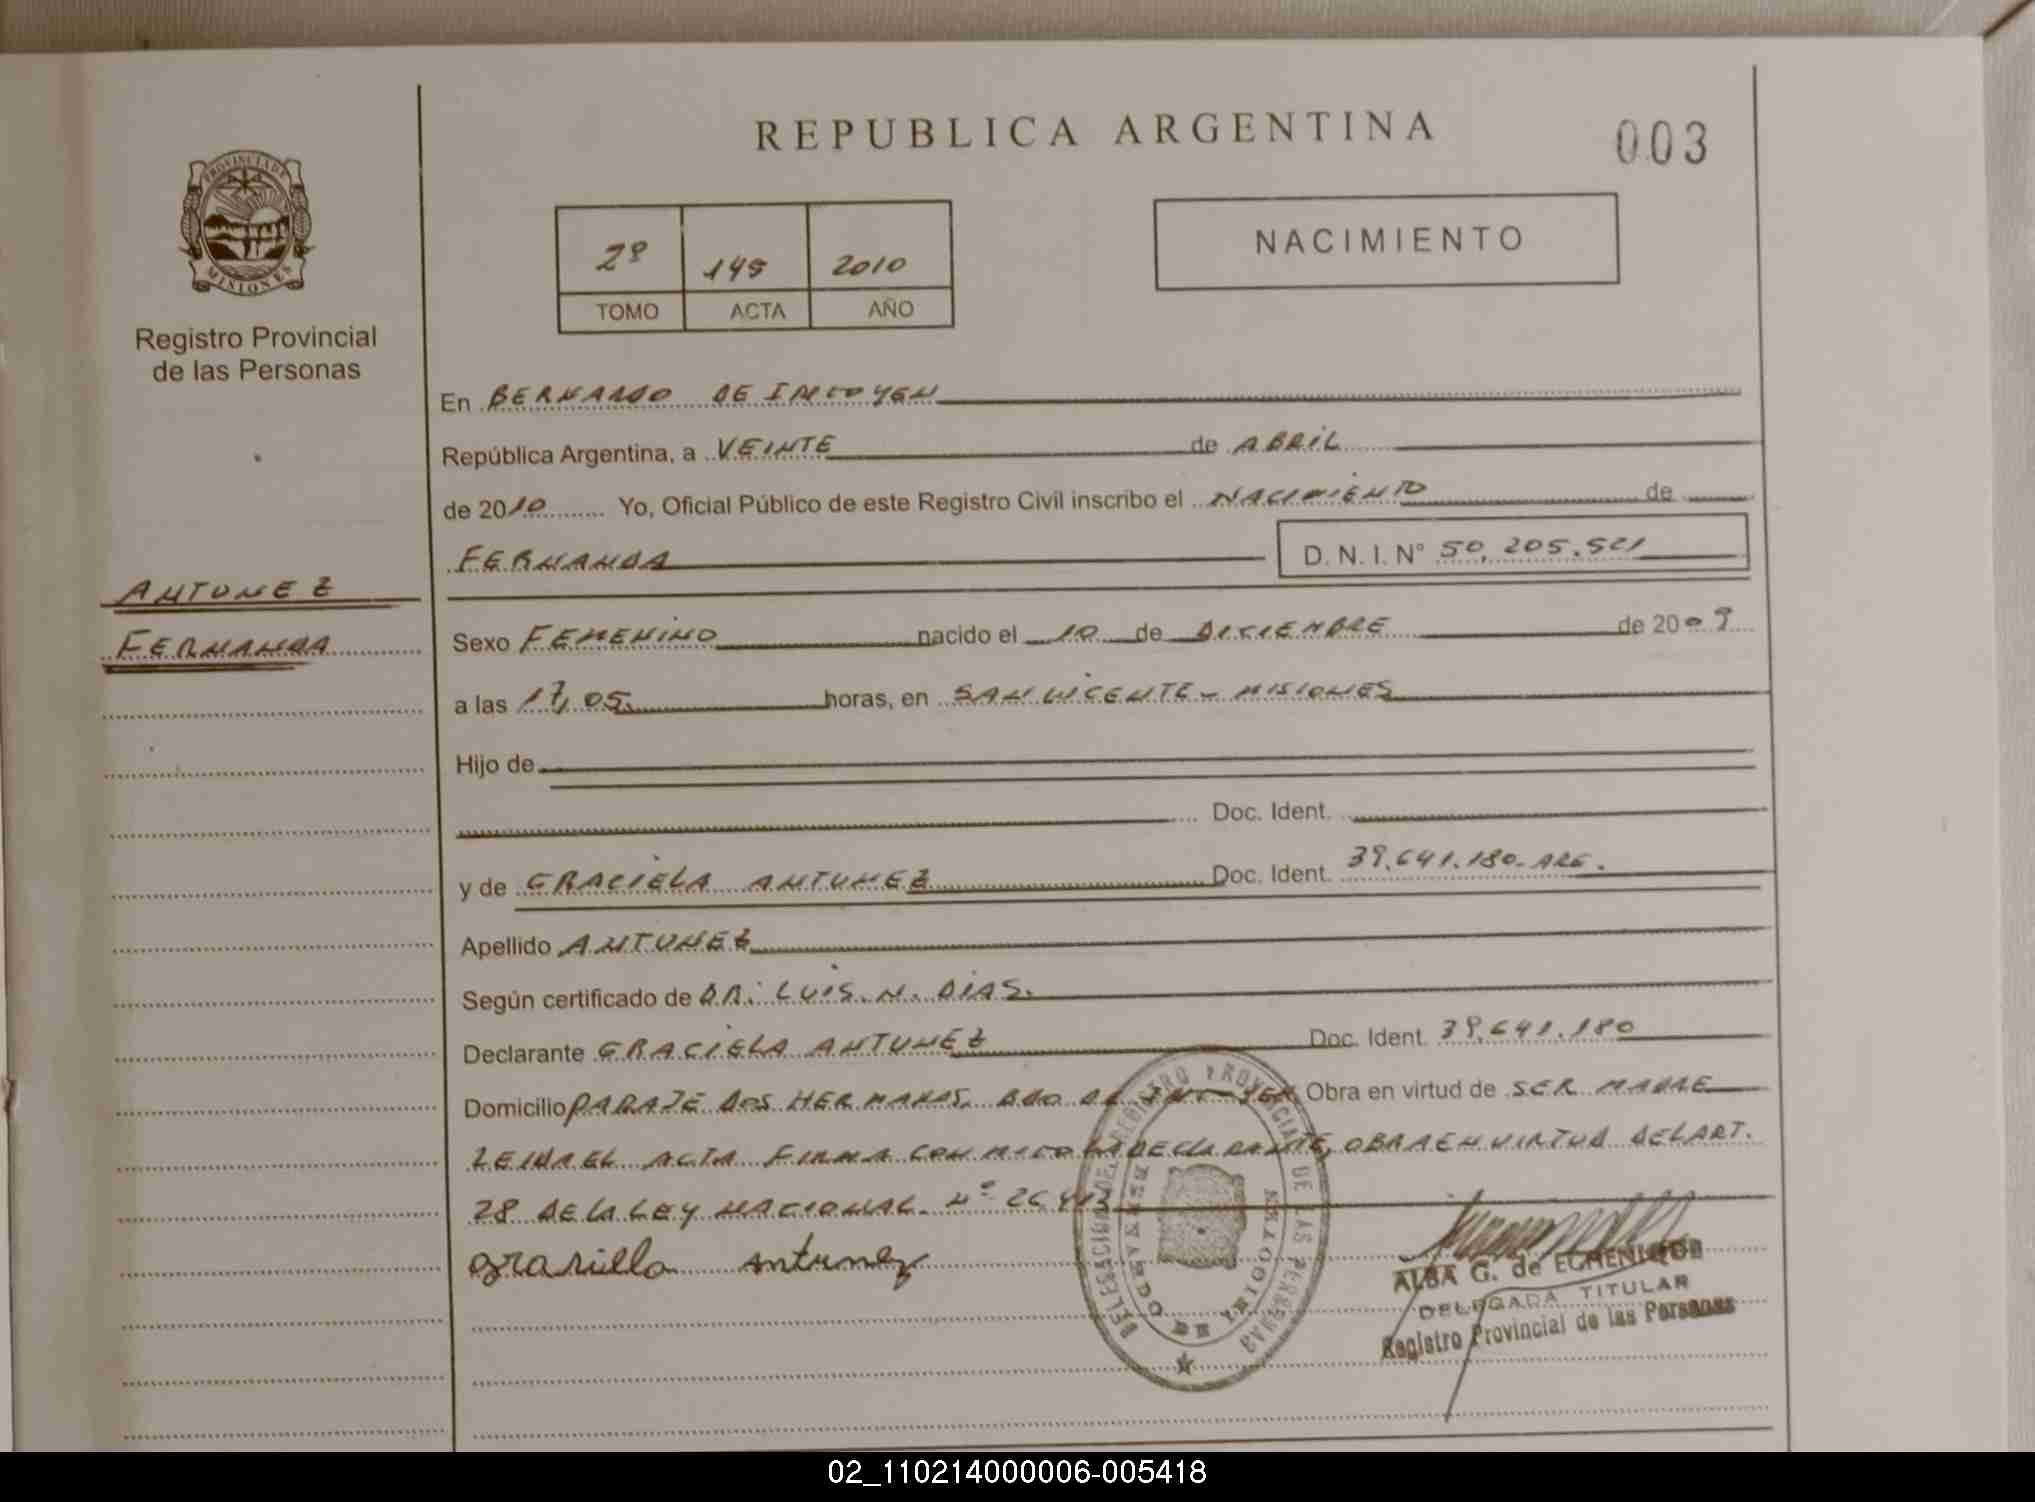 REPUBLICA ARGENTINA
003
PROVINCIA DE
MISIONES
Registro Provincial
de las Personas
2º 145 2010
TOMO ACTA AÑO
NACIMIENTO
En BERNARDO DE IRIGOYEN
República Argentina, a VEINTE de ABRIL
de 2010 Yo, Oficial Público de este Registro Civil inscribo el NACIMIENTO de
FERNANDA D. N. I. N° 50.205.521
ANTUNEZ
FERNANDA
Sexo FEMENINO nacido el 10 de DICIEMBRE de 2009
a las 17,05 horas, en SAN VICENTE - MISIONES
Hijo de
Doc. Ident.
y de GRACIELA ANTUNEZ Doc. Ident. 39.641.180-ARG.
Apellido ANTUNEZ
Según certificado de DR. LUIS. N. DIAS.
Declarante GRACIELA ANTUNEZ Doc. Ident. 39.641.180
Domicilio PARAJE DOS HERMANAS, BDO DE Obra en virtud de SER MADRE
LEIDA EL ACTA FIRMA CONMIGO LA DECLARANTE, OBRA EN VIRTUD DEL ART.
28 DE LA LEY NACIONAL Nº 26413
grasiella antunez
DELEGACION DEL REGISTRO PROVINCIAL DE LAS PERSONAS
BERNARDO DE IRIGOYEN
ALBA G. de ECHENIQUE
DELEGADA TITULAR
Registro Provincial de las Personas
02_110214000006-005418